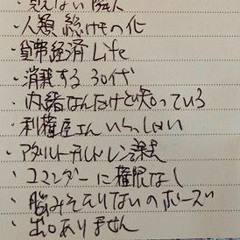 ・見えない隣人
・人類総けもの化
・貨幣経済Life
・消耗する30代
・内緒なんだけど知っている
・利権屋さんいらっしゃい
・アダルトチルドレン讃
・コマンダーに権限なし
・脳みそをりないのポーズ
・出口ありません